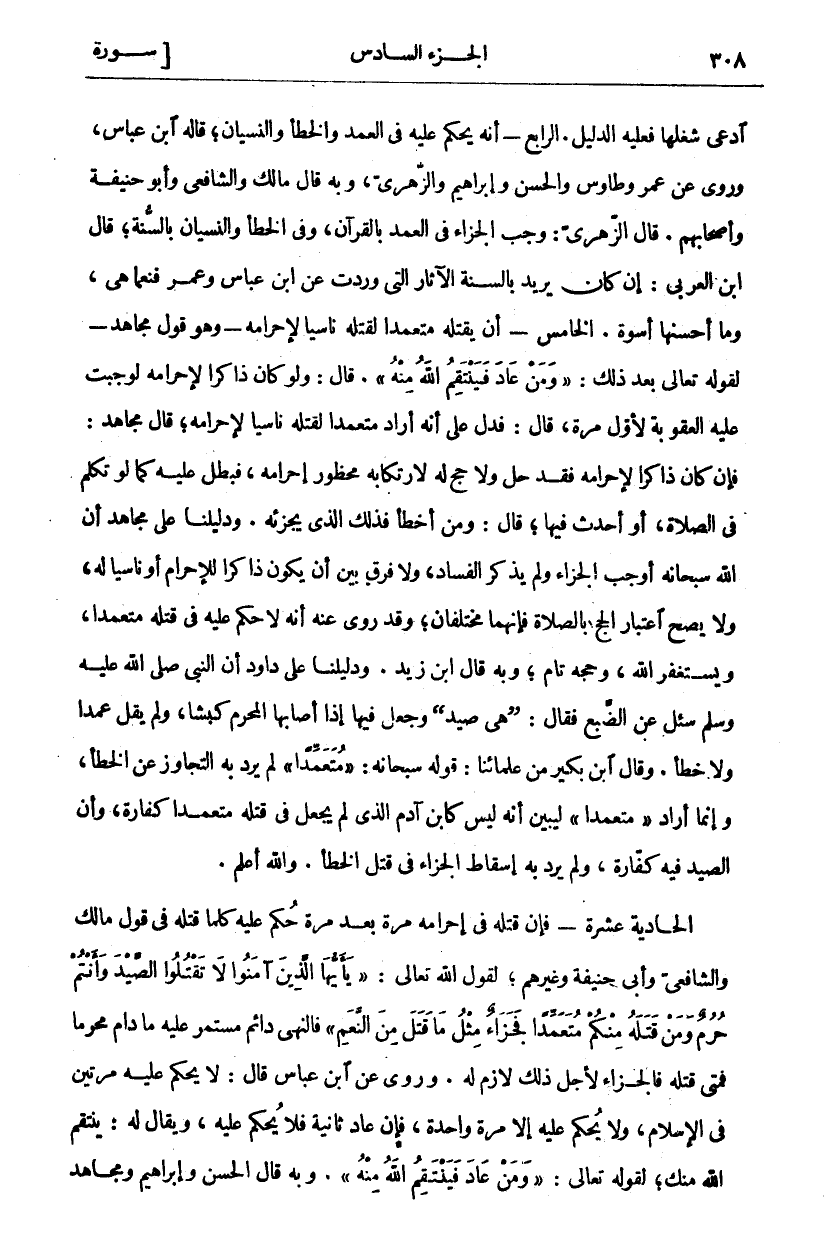 ٣٠٨ الجـزء السـادس [ سـورة
آدعى شغلها فعليه الدليل. الرابع — أنه يحكم عليه فى العمد والخطأ والنسيان؛ قاله آبن عباس،
وروى عن عمر وطاوس والحسن و إبراهيم والزّهرىّ، و به قال مالك والشافعى وأبو حنيفـة
وأصحابهم . قال الزّهرىّ: وجب الجزاء فى العمد بالقرآن، وفى الخطأ والنسيان بالسُّنة؛ قال
ابن العربى : إن كان يريد بالسـنة الآثار التى وردت عن ابن عباس وعمـر فنعما هى ،
وما أحسنها أسوة . الخامس — أن يقتله متعمدا لقتله ناسيا لإحرامه — وهو قول مجاهد —
لقوله تعالى بعد ذلك : « وَمَنْ عَادَ فَيَنْتَقِمُ اللهُ مِنْهُ » . قال : ولو كان ذاكرا لإحرامه لوجبت
عليه العقوبة لأوّل مرة، قال : فدل على أنه أراد متعمدا لقتله ناسيا لإحرامه؛ قال مجاهد :
فإن كان ذاكرا لإحرامه فقـد حل ولا حج له لارتكابه محظور إحرامه ، فبطل عليـه كما لو تكلم
فى الصلاة، أو أحدث فيها ؛ قال : ومن أخطأ فذلك الذى يجزئه . ودليلنـا على مجاهد أن
الله سبحانه أوجب الجزاء ولم يذكر الفساد، ولا فرق بين أن يكون ذاكرا للإحرام أو ناسيا له،
ولا يصح آعتبار الحج بالصلاة فإنهما مختلفان؛ وقد روى عنه أنه لا حكم عليه فى قتله متعمدا،
و يسـتغفر الله ، وحجه تام ؛ وبه قال ابن زيد . ودليلنـا على داود أن النبى صلى الله عليـه
وسلم سئل عن الضَّبع فقال : ”هى صيد“ وجعل فيها إذا أصابها المحرم كبشا، ولم يقل عمدا
ولا خطأ . وقال آبن بكير من علمائنا : قوله سبحانه : «مُتَعَمِّدًا» لم يرد به التجاوز عن الخطأ،
و إنما أراد « متعمدا » ليبين أنه ليس كابن آدم الذى لم يجعل فى قتله متعمـدا كفارة، وأن
الصيد فيه كفّارة ، ولم يرد به إسقاط الجزاء فى قتل الخطأ . والله أعلم .
الحادية عشرة — فإن قتله فى إحرامه مرة بعـد مرة حُكم عليه كلما قتله فى قول مالك
والشافعىّ وأبى حنيفة وغيرهم ؛ لقول الله تعالى : « يَأَيُّهَا الَّذِينَ آمَنُوا لَا تَقْتُلُوا الصَّيْدَ وَأَنْتُمْ
حُرُمٌ وَمَنْ قَتَلَهُ مِنْكُمْ مُتَعَمِّدًا فَجَزَاءٌ مِثْلُ مَا قَتَلَ مِنَ النَّعَمِ» فالنهى دائم مستمر عليه ما دام محرما
فمتى قتله فالجـزاء لأجل ذلك لازم له . وروى عن آبن عباس قال : لا يحكم عليـه مرتين
فى الإسلام، ولا يُحكم عليه إلا مرة واحدة ، فإن عاد ثانية فلا يُحكم عليه ، ويقال له : ينتقم
الله منك؛ لقوله تعالى : « وَمَنْ عَادَ فَيَنْتَقِمُ اللهُ مِنْهُ » . وبه قال الحسن و إبراهيم ومجاهـد